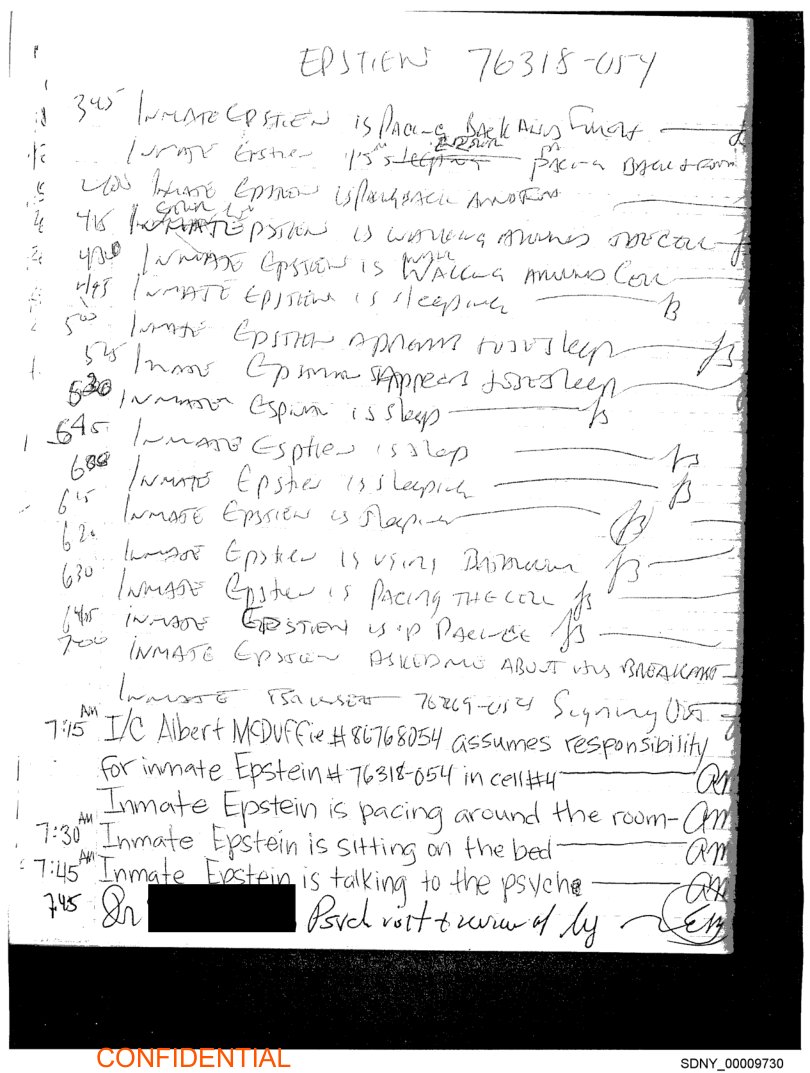 EPSTIEN 76318-054
345 INMATE EPSTIEN IS PACING BACK AND
INMATE Epstien is sleeping PACING BACK &
400 INMATE EPSTIEN IS
415 INMATE EPSTIEN IS WALKING AROUND THE CELL
430 INMATE EPSTIEN IS WALKING AROUND CELL
445 INMATE EPSTIEN is sleeping
500 INMATE EPSTIEN APPEARS sleep
515 INMATE APPEARS sleep
530 INMATE is sleep
545 INMATE Esptien is sleep
600 INMATE Epstien is sleeping
615 INMATE EPSTIEN is sleeping
620 INMATE Epstien is using
630 INMATE Epstien is PACING THE CELL
645 INMATE EPSTIEN IS
700 INMATE EPSTIEN ASKED ME ABOUT his BREAKFAST
INMATE 76269-054 Signing Out
7:15 AM I/C Albert McDuffie #86768054 assumes responsibility
for inmate Epstein # 76318-054 in cell #4 am
Inmate Epstein is pacing around the room - am
7:30 AM Inmate Epstein is sitting on the bed am
7:45 AM Inmate Epstein is talking to the psyche am
745 Dr Psych visit & review of log
CONFIDENTIAL
SDNY_00009730